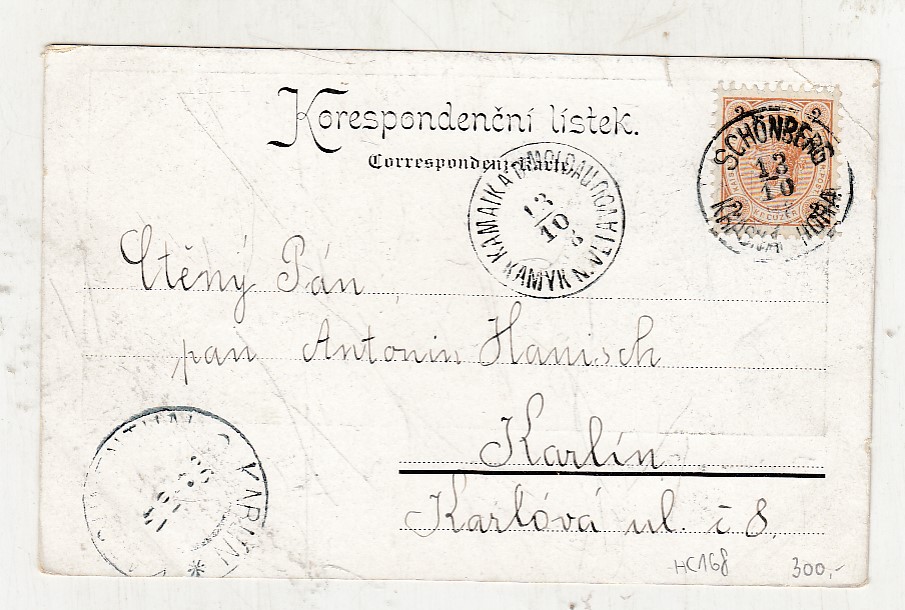 Korespondenční lístek.
Correspondenz-Karte
SCHÖNBERG
13
10
KRÁSNÁ HORA
2 2
KREUZER
KAMAIK A. D. MOLDAU
13
10
KAMÝK N. VLT.
Ctěný Pán
pan Antonin Hanisch
Karlín
Karlová ul. č 8.
KARLÍN
HC168
300,-